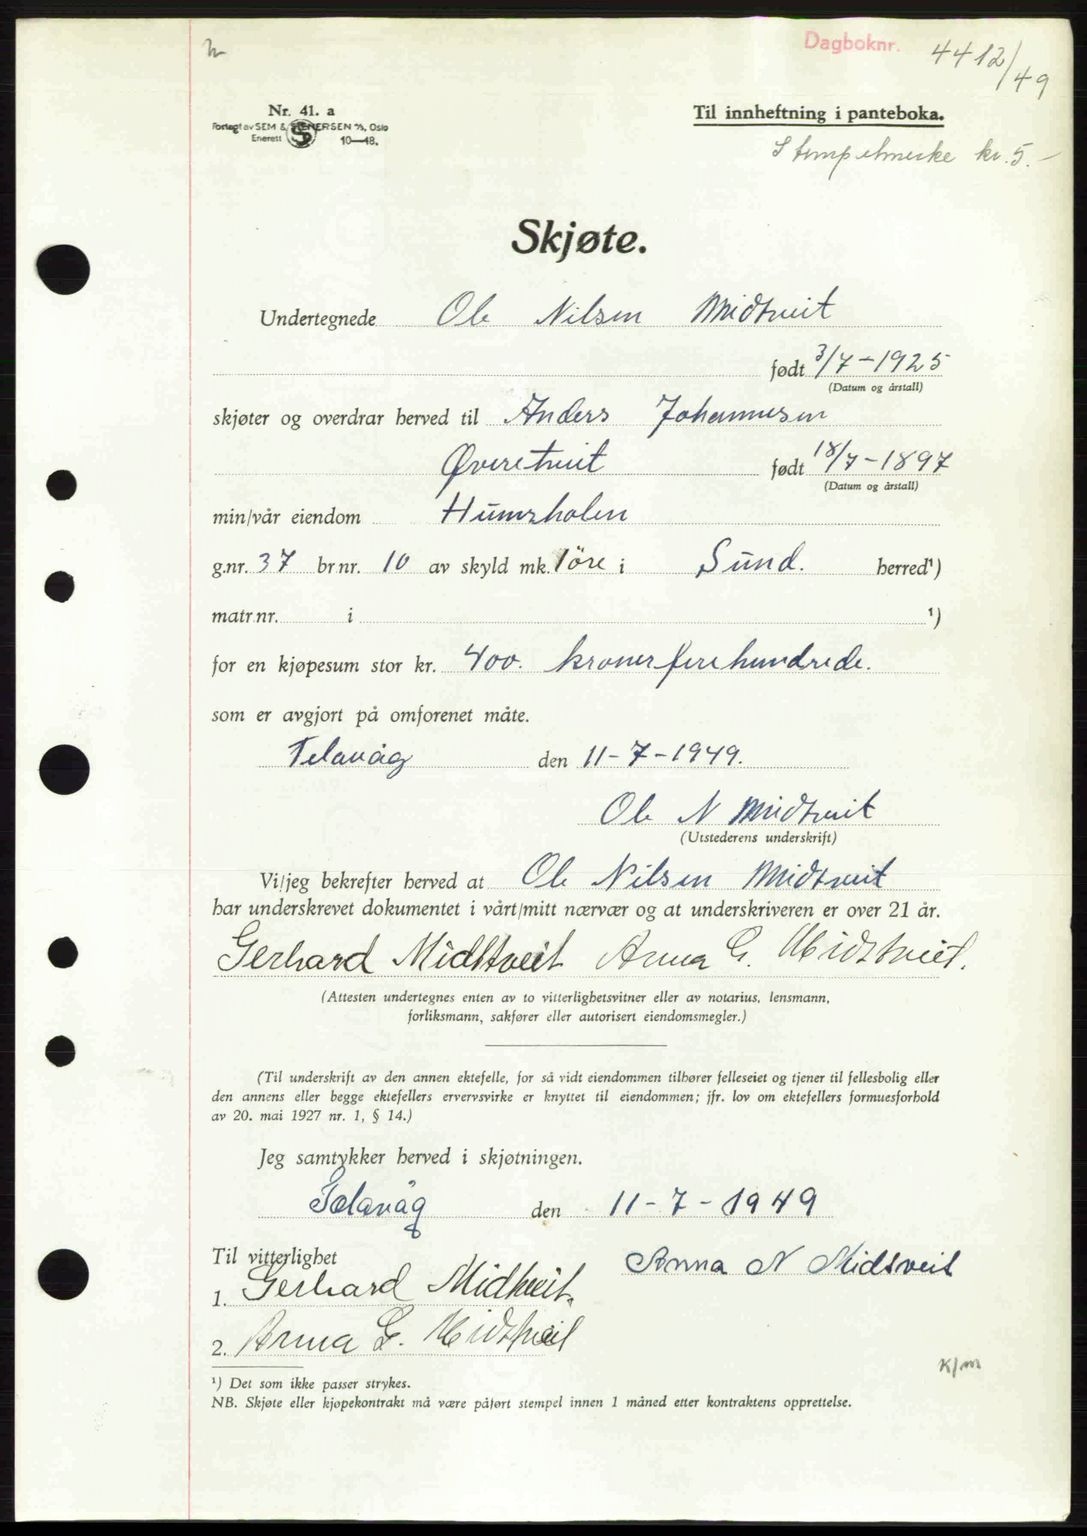 Dagboknr. 4412/49
Nr. 41. a
Forlagt av SEM & STENERSEN A/S, Oslo
Enerett 10—48.
Til innheftning i panteboka.
Stempelmerke kr. 5.-
Skjøte.
Undertegnede Ole Nilsen Midtveit
født 3/7-1925
(Datum og årstall)
skjøter og overdrar herved til Anders Johannesen
Øvretveit født 18/7-1897
(Datum og årstall)
min/vår eiendom Humrholen
g.nr. 37 br.nr. 10 av skyld mk. 1 öre i Sund. herred¹)
matr.nr. i ¹)
for en kjøpesum stor kr. 400. kroner fire hundrede.
som er avgjort på omforenet måte.
Telavåg den 11-7-1949.
Ole N Midtveit
(Utstederens underskrift)
Vi/jeg bekrefter herved at Ole Nilsen Midtveit
har underskrevet dokumentet i vårt/mitt nærvær og at underskriveren er over 21 år.
Gerhard Midttveit Anna G. Midtveit.
(Attesten undertegnes enten av to vitterlighetsvitner eller av notarius, lensmann,
forliksmann, sakfører eller autorisert eiendomsmegler.)
(Til underskrift av den annen ektefelle, for så vidt eiendommen tilhører felleseiet og tjener til fellesbolig eller
den annens eller begge ektefellers ervervsvirke er knyttet til eiendommen; jfr. lov om ektefellers formuesforhold
av 20. mai 1927 nr. 1, § 14.)
Jeg samtykker herved i skjøtningen.
Telavåg den 11-7-1949
Til vitterlighet Anna N Midtveit
1. Gerhard Midtveit.
2. Anna G. Midtveit
K/m
¹) Det som ikke passer strykes.
NB. Skjøte eller kjøpekontrakt må være påført stempel innen 1 måned etter kontraktens opprettelse.